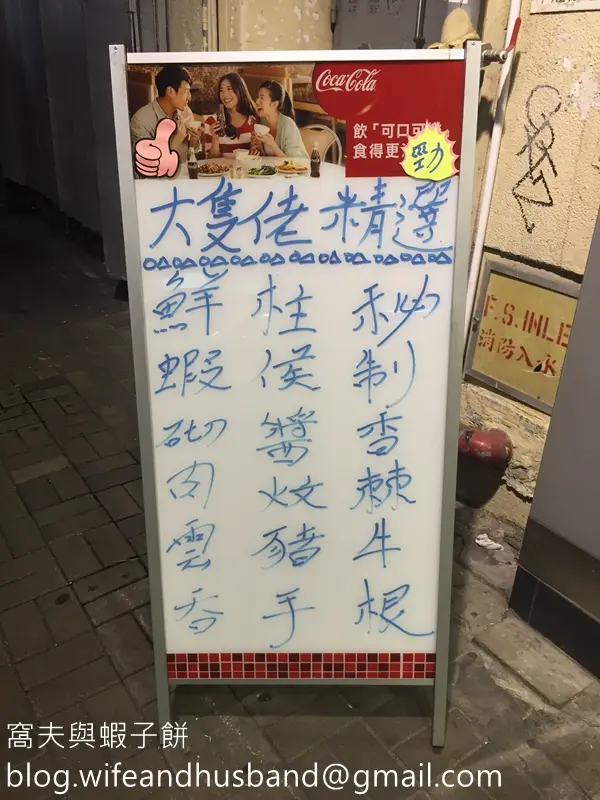 Coca-Cola
飲「可口可
食得更
勁
大隻佬精選
秘制香辣牛根
柱侯醬炆豬手
鮮蝦砌肉雲吞
F.S.INLE
消防入水
窩夫與蝦子餅
blog.wifeandhusband@gmail.com